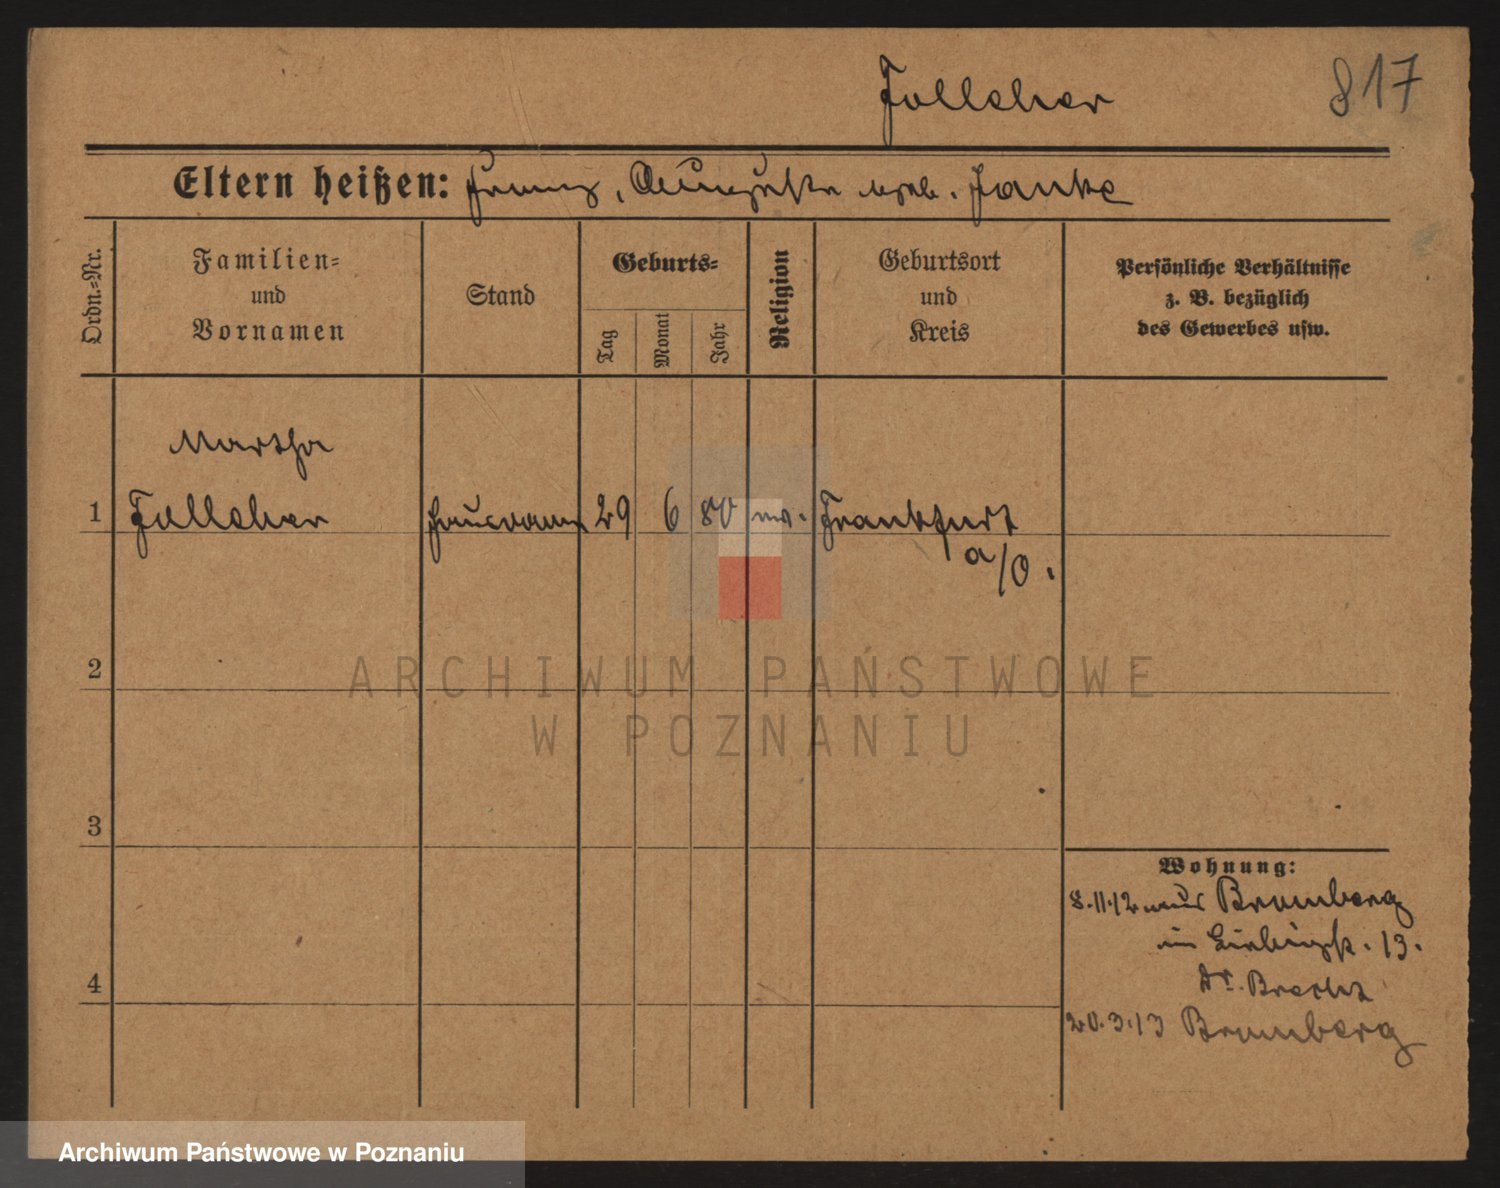 Follcher
817
Eltern heißen: Franz, Auguste geb. Janke
Ordn.-Nr.
Familien-
und
Vornamen
Stand
Geburts-
Tag
Monat
Jahr
Religion
Geburtsort
und
Kreis
Persönliche Verhältnisse
z. B. bezüglich
des Gewerbes usw.
Martha
1 Follcher 29 6 80 Frankfurt
a/O.
2
3
4
Wohnung:
8.11.12 aus Bromberg
13.
Dr.
20.3.13 Bromberg
ARCHIWUM PAŃSTWOWE
W POZNANIU
Archiwum Państwowe w Poznaniu